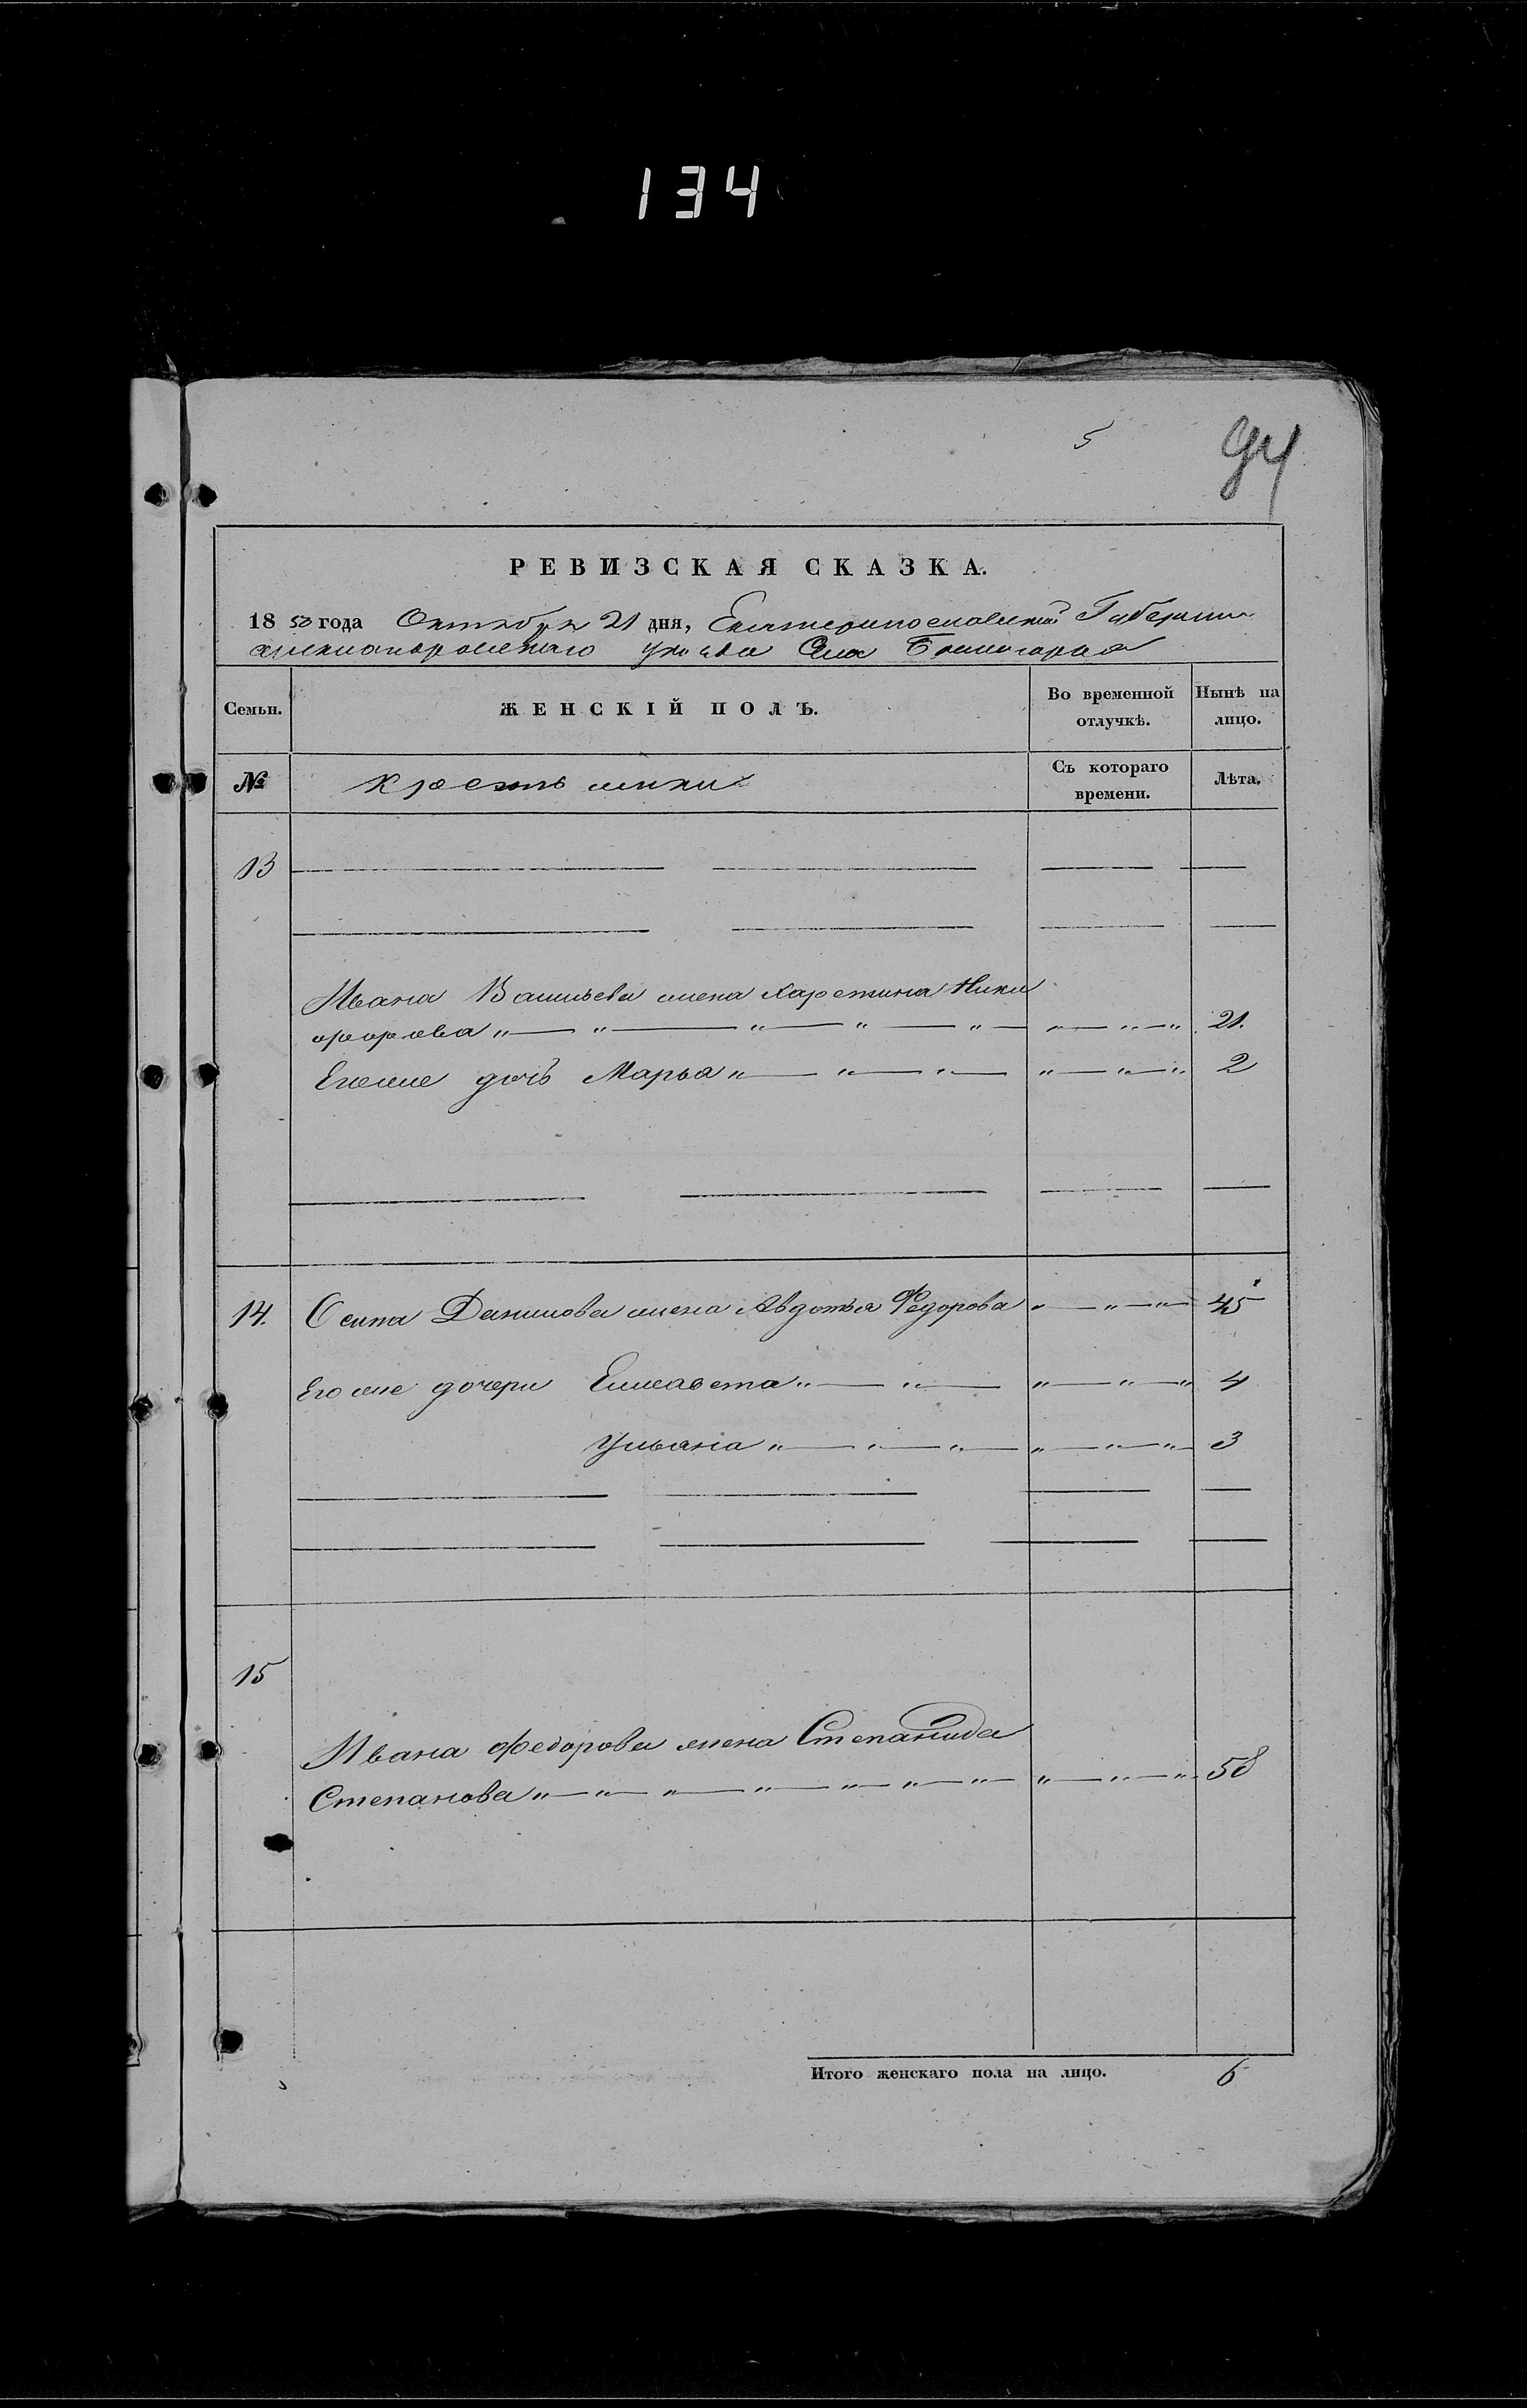 134
5
94
РЕВИЗСКАЯ СКАЗКА.
1850 года Октября 21 дня, Екатеринославской Губернии
Александровскаго уезда Села
Семьи. ЖЕНСКІЙ ПОЛЪ. Во временной отлучкѣ. Нынѣ на лицо.
№ Крестьянки Съ котораго времени. Лѣта.
13
Ивана Васильева жена Харетина Ники
форова 21.
Егоже дочь Марья 2
14. Осипа Данилова жена Авдотья Федорова 45
Егоже дочери Елисавета 4
Ульяна 3
15
Ивана Федорова жена Степанида
Степанова 58
Итого женскаго пола на лицо. 6